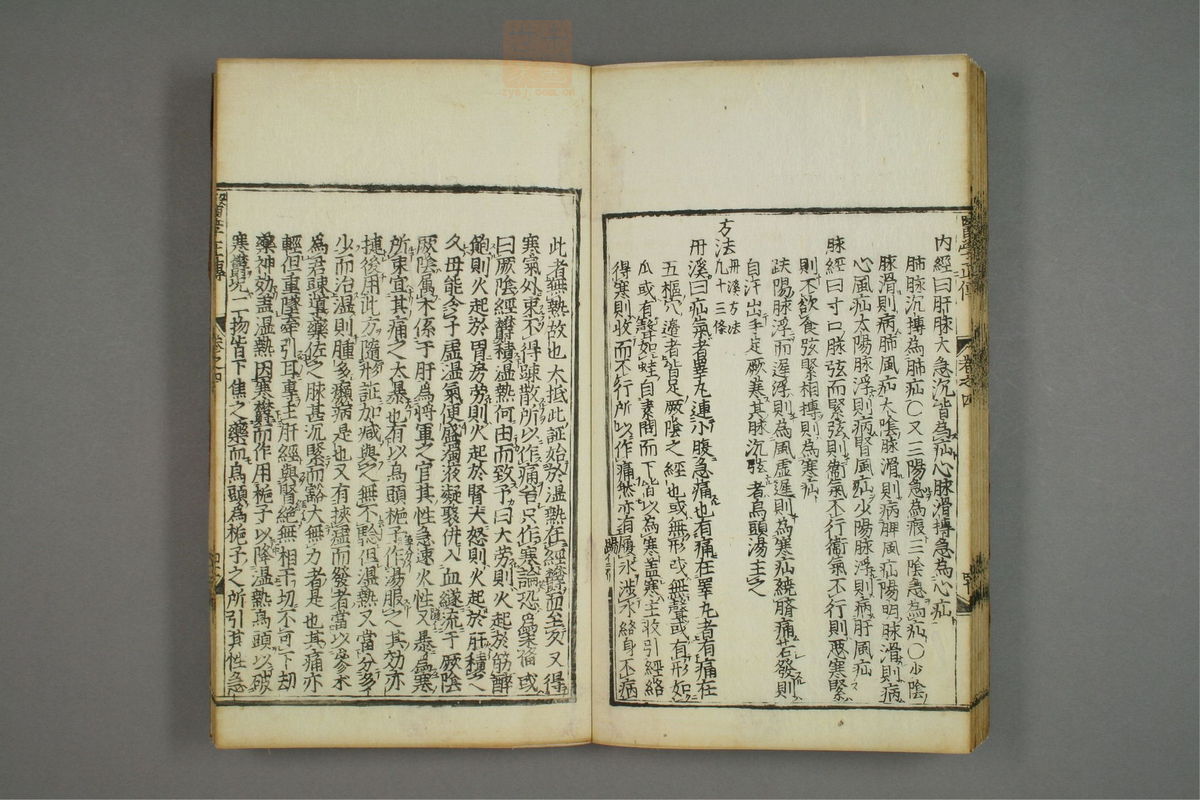 內經曰肝脉大急沉皆為疝心脉滑搏急為心疝
肺脉沉搏為肺疝〇又三陽急為瘕三陰急為疝〇少陰
脉滑則病肺風疝太陰脉滑則病脾風疝陽明脉滑則病
心風疝太陽脉浮則病腎風疝少陽脉浮則病肝風疝
脉經曰寸口脉弦而緊弦則衛氣不行衛氣不行則惡寒緊
則不欲食弦緊相搏則為寒疝
趺陽脉浮而遲浮則為風虛遲則為寒疝繞臍痛若發則
自汗出手足厥寒其脉沉弦者烏頭湯主之
方法
丹溪方法
九十三條
丹溪曰疝氣者睪丸連小腹急痛也有痛在睪丸者有痛在
五樞穴邊者皆足厥陰之經也或無形或無聲或有形如
瓜或有聲如蛙自素問而下皆以為寒蓋寒主收引經絡
得寒則收而不行所以作痛然亦有履氷涉水終身不病
此者無熱故也大抵此証始於湿熱在經鬱而至久又得
寒氣外束不得疎散所以作痛若只作寒論恐為未備或
曰厥陰經鬱積湿熱何由而致予曰大劳則火起於筋醉
飽則火起於胃房劳則火起於腎大怒則火起於肝積之
久母能令子虛湿氣便盛濁液凝聚併入血隧流于厥陰
厥陰属木係于肝為將軍之官其性急速火性又暴為寒
所束宜其痛之太暴也有以烏頭梔子作湯服之其効亦
捷後用此方隨形証加减與之無不驗但湿熱又當分多
少而治湿則腫多癩病是也又有挾虛而發者當以參朮
為君疎導藥佐之脉甚沉緊而豁大無力者是也其痛亦
輕但重墜牽引耳專主肝經與腎絕無相干切不可下劫
藥神効盖湿熱因寒鬱而作用梔子以降湿熱烏頭以破
寒鬱况二物皆下焦之藥而烏頭為梔子之所引其性急